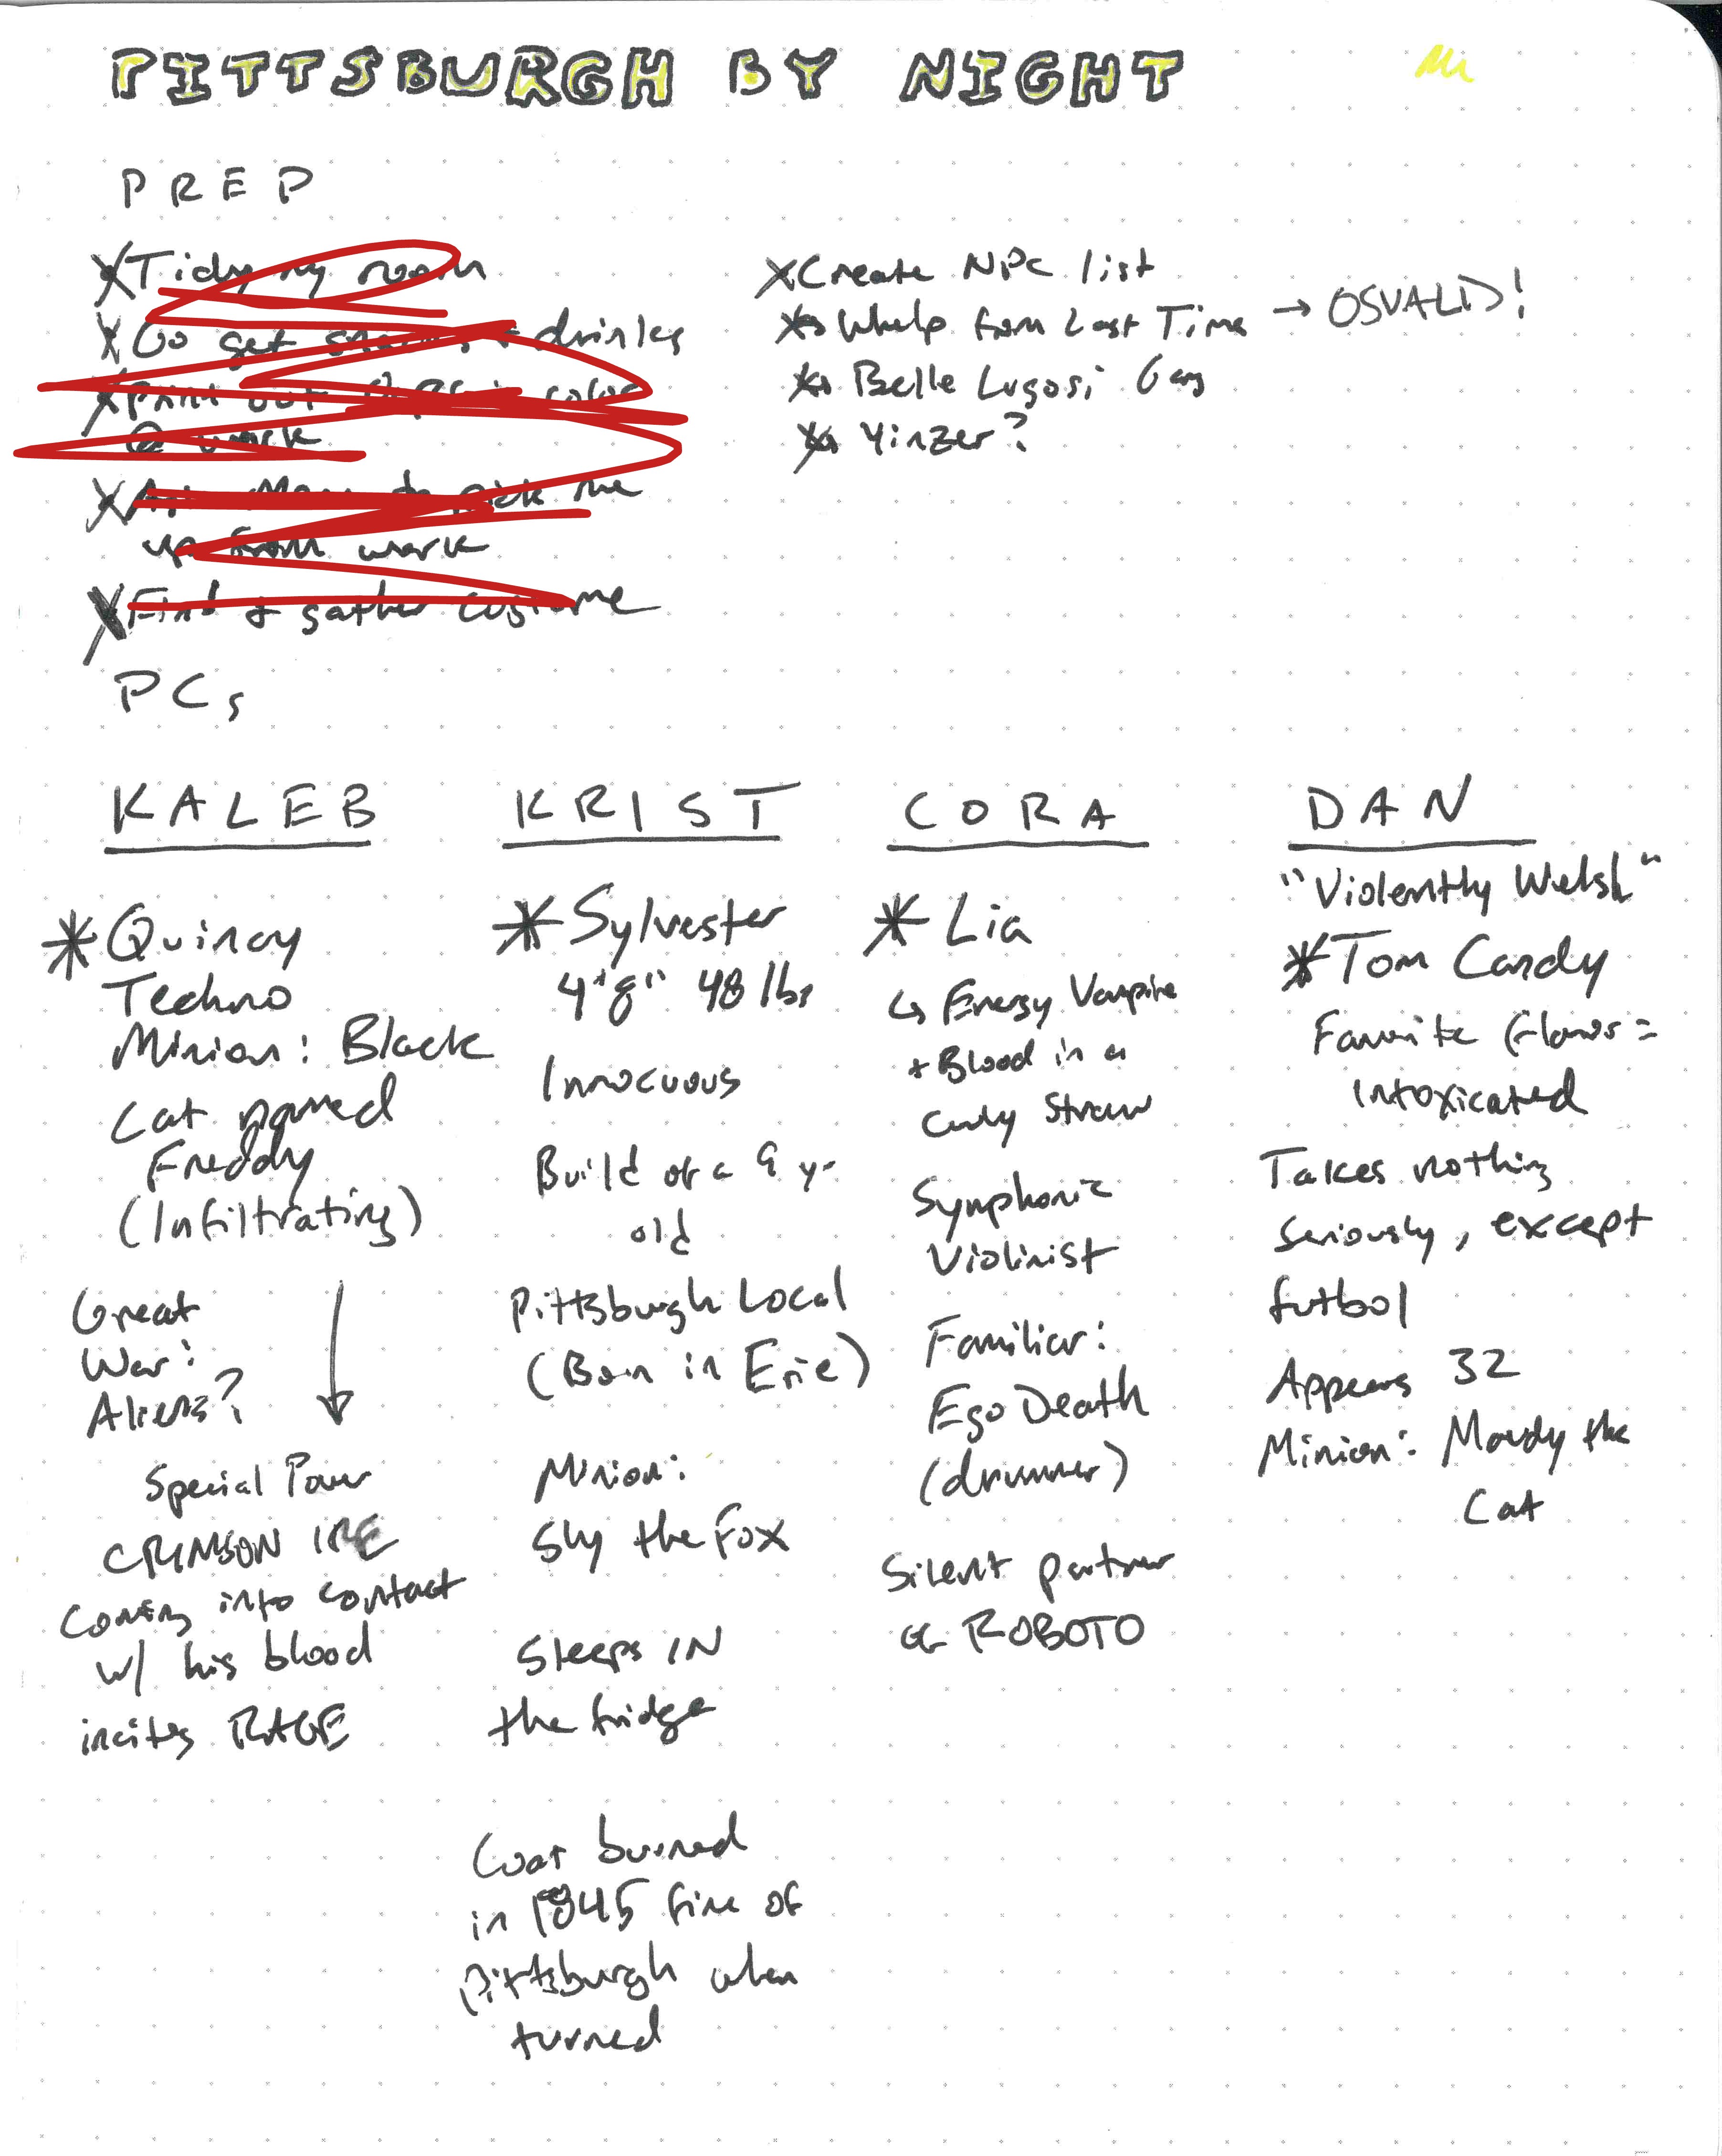 PITTSBURGH BY NIGHT
PREP
Tidy my room
Go get snacks + drinks
Print out in color
@ work
to pick me
up from work
Find & gather costume
Create NPC list
Whelp from Last Time → OSVALD!
Belle Lugosi Guy
Yinzer?
PCs
KALEB
* Quincy
Techno
Minion: Black
Cat named
Freddy
(Infiltrating)
Great
War:
Aliens?
Special Power
CRIMSON IRE
Coming into contact
w/ his blood
incites RAGE
KRIST
* Sylvester
4'8" 48 lbs
Innocuous
Build of a 9 yr
old
Pittsburgh Local
(Born in Erie)
Minion:
Sly the Fox
Sleeps IN
the fridge
Coat burned
in 1845 fire of
Pittsburgh when
turned
CORA
* Lia
↳ Energy Vampire
+ Blood in a
Curly Straw
Symphonic
Violinist
Familiar:
Ego Death
(drummer)
Silent partner
of ROBOTO
DAN
"Violently Welsh"
* Tom Cardy
Favorite flavor =
Intoxicated
Takes nothing
seriously, except
futbol
Appears 32
Minion: Mordy the
Cat